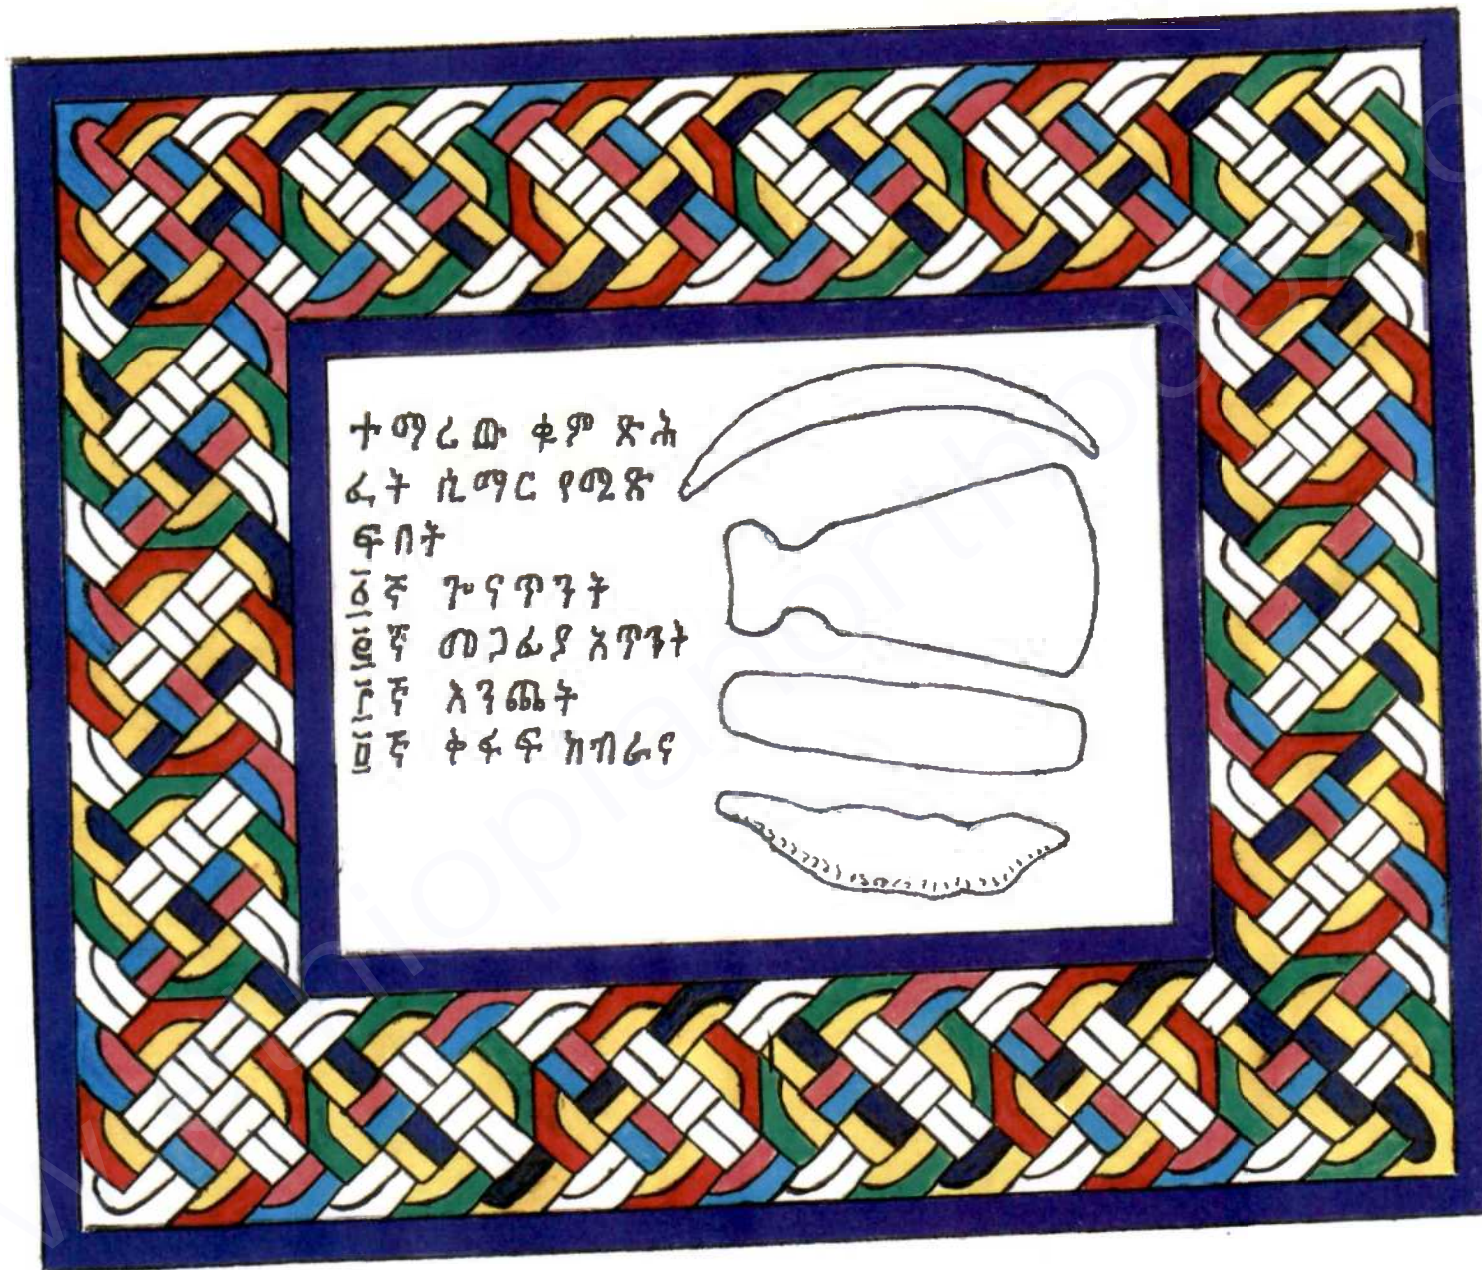 ተማሪው ቁም ጽሕ
ፈት ሲማር የሚጽ
ፍበት
፩ኛ ጐናጥንት
፪ኛ መጋፊያ አጥንት
፫ኛ እንጨት
፬ኛ ቅፋፍ ከብራና